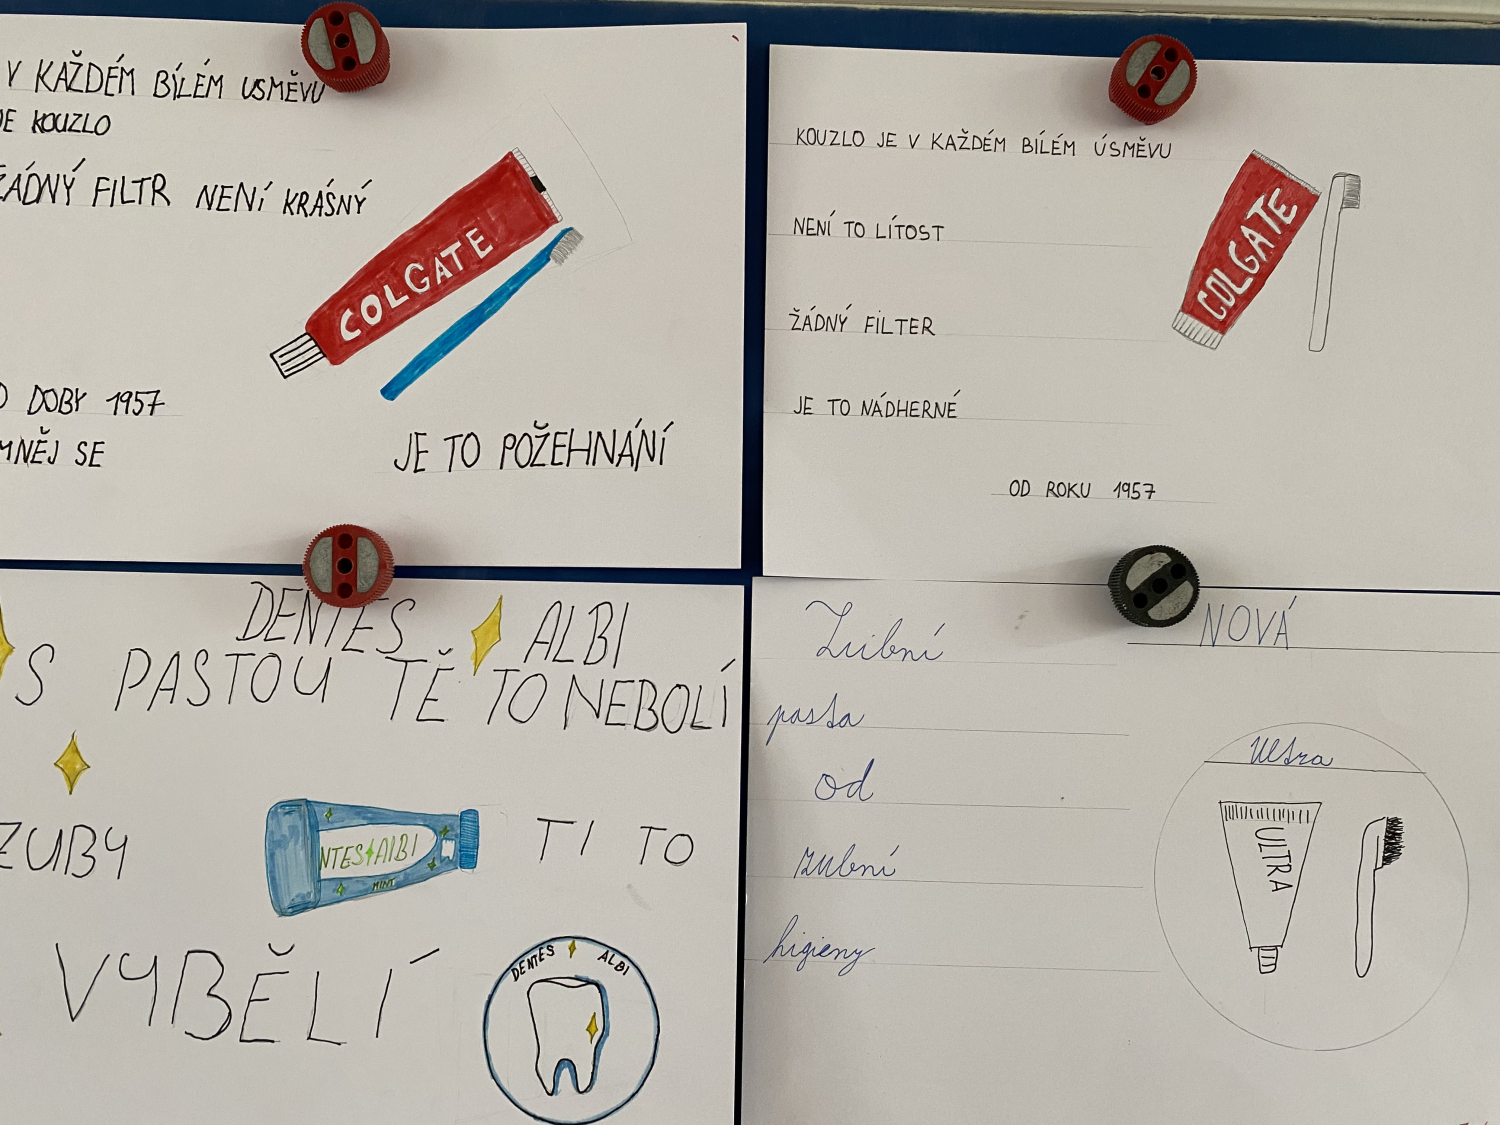 V KAŽDÉM BÍLÉM USMĚVU
JE KOUZLO
ŽÁDNÝ FILTR NENÍ KRÁSNÝ
COLGATE
DOBY 1957
SE
JE TO POŽEHNÁNÍ
KOUZLO JE V KAŽDÉM BÍLÉM ÚSMĚVU
NENÍ TO LÍTOST
ŽÁDNÝ FILTER
JE TO NÁDHERNÉ
OD ROKU 1957
COLGATE
DENTES ALBI
S PASTOU TĚ TO NEBOLÍ
ZUBY
NTES ALBI
MINT
TI TO
VYBĚLÍ
DENTES ALBI
Zubní
pasta
od
zubní
higieny
NOVÁ
Ultra
ULTRA